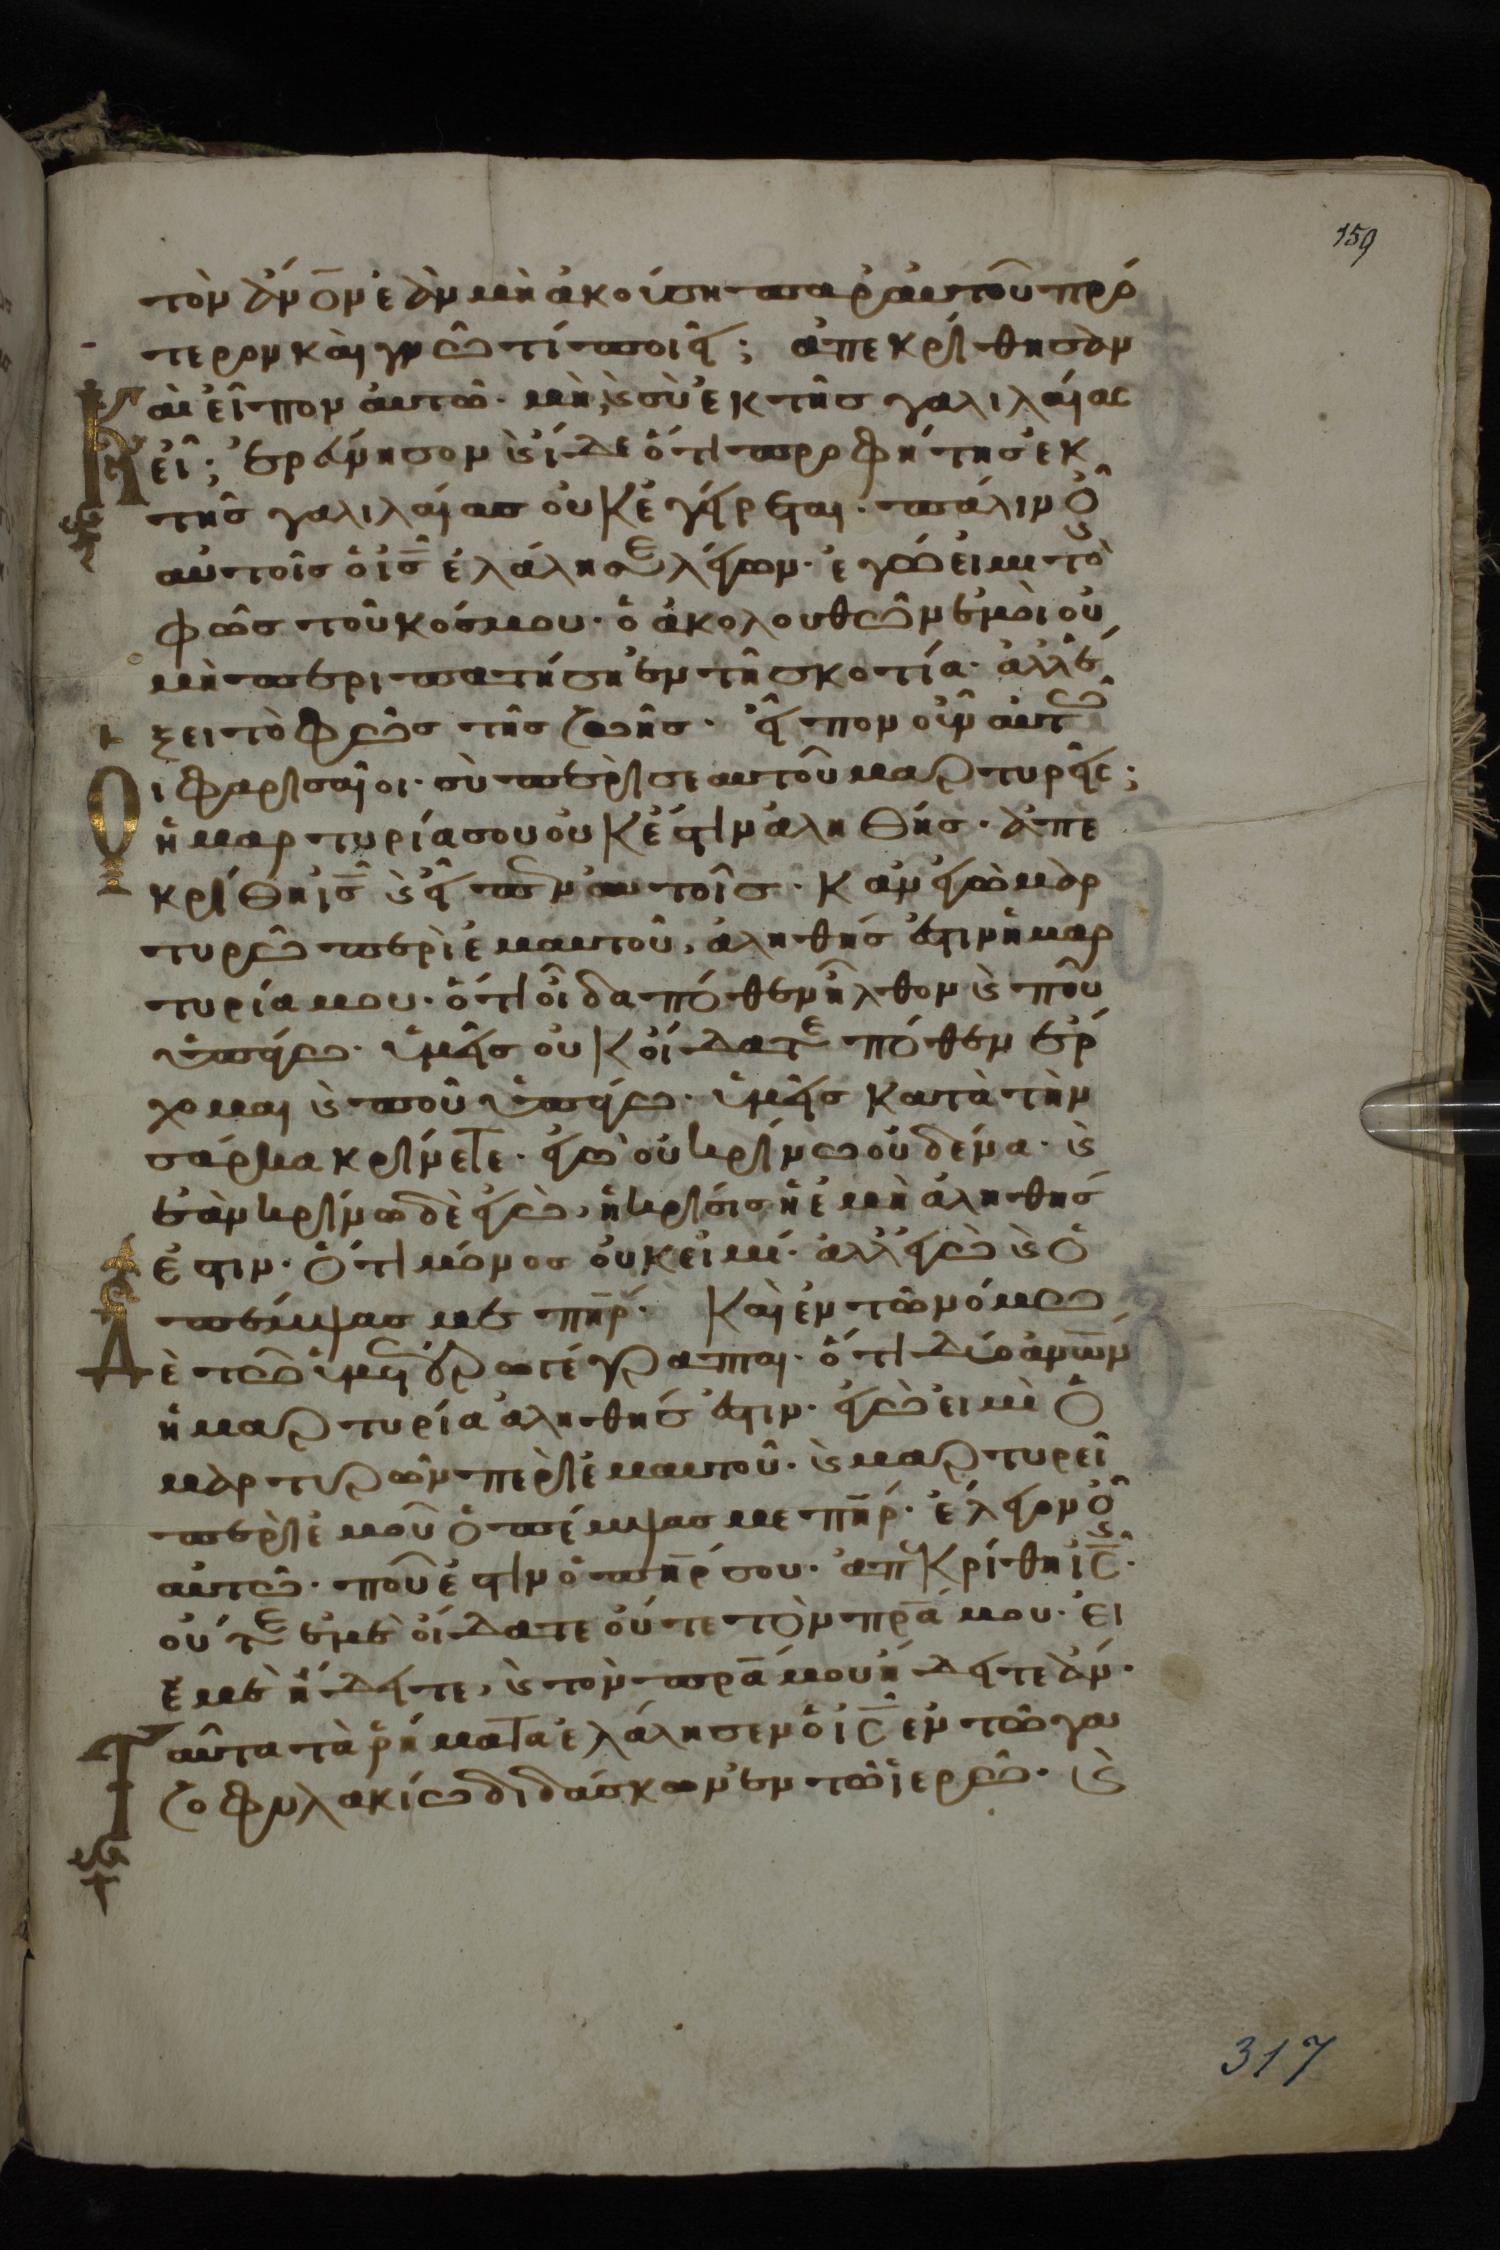 159
τὸν ἄν̅ον ἐὰν μὴ ἀκούση παρ' αὐτοῦ πρό
τερον καὶ γνῶ τί ποιεῖ; ἀπεκρίθησαν
Κ αὶ εἶπον αὐτῶ· μὴ, καὶ σὺ ἐκ τῆς γαλιλαίας
εἶ; ἐραύνησον καὶ ἴδε ὅτι προφήτης ἐκ
τῆς γαλιλαίας οὐκ ἐγείρεται· πάλιν οὖν
αὐτοῖς ὁ ι̅ς̅ ἐλάλησε λέγων· ἐγώ εἰμι τὸ
φῶς τοῦ κόσμου· ὁ ἀκολουθῶν ἐμοὶ οὐ
μὴ περιπατήση ἐν τῆ σκοτία· ἀλλ' ἕ
ξει τὸ φῶς τῆς ζωῆς· εἶπον οὖν αὐτῶ
Ο ἱ φαρισαῖοι· σὺ περὶ σεαυτοῦ μαρτυρεῖς;
ἡ μαρτυρία σου οὐκ ἔστιν ἀληθής· ἀπε
κρίθη ι̅ς̅ καὶ εἶπεν αὐτοῖς· κἂν ἐγὼ μαρ
τυρῶ περὶ ἐμαυτοῦ, ἀληθής ἐστιν ἡ μαρ
τυρία μου· ὅτι οἶδα πόθεν ἦλθον καὶ ποῦ
ὑπάγω· ὑμεῖς οὐκ οἴδατε πόθεν ἔρ
χομαι καὶ ποῦ ὑπάγω· ὑμεῖς κατὰ τὴν
σάρκα κρίνετε· ἐγὼ οὐ κρίνω οὐδένα· καὶ
ἐὰν κρίνω δὲ ἐγὼ, ἡ κρίσις ἡ ἐμὴ ἀληθής
ἐστιν· ὅτι μόνος οὐκ εἰμί· ἀλλ' ἐγὼ καὶ ὁ
πέμψας με π̅η̅ρ̅· Καὶ ἐν τῶ νόμω
Δ ὲ τῶ ὑμετέρω γέγραπται· ὅτι δύο ἀν̅ων
ἡ μαρτυρία ἀληθής ἐστιν· ἐγώ εἰμι ὁ
μαρτυρῶν περὶ ἐμαυτοῦ· καὶ μαρτυρεῖ
περὶ ἐμοῦ ὁ πέμψας με π̅η̅ρ̅· ἔλεγον οὖν
αὐτῶ· ποῦ ἐστιν ὁ π̅η̅ρ̅ σου· ἀπεκρίθη ι̅ς̅·
οὔτε ἐμὲ οἴδατε οὔτε τὸν π̅ρ̅α̅ μου· εἰ
ἐμὲ ἤδειτε, καὶ τὸν π̅ρ̅α̅ μου ἤδειτε ἄν·
Τ αῦτα τὰ ῥήματα ἐλάλησεν ὁ ι̅ς̅ ἐν τῶ γα
ζοφυλακίω διδάσκων ἐν τῶ ἱερῶ· καὶ
317